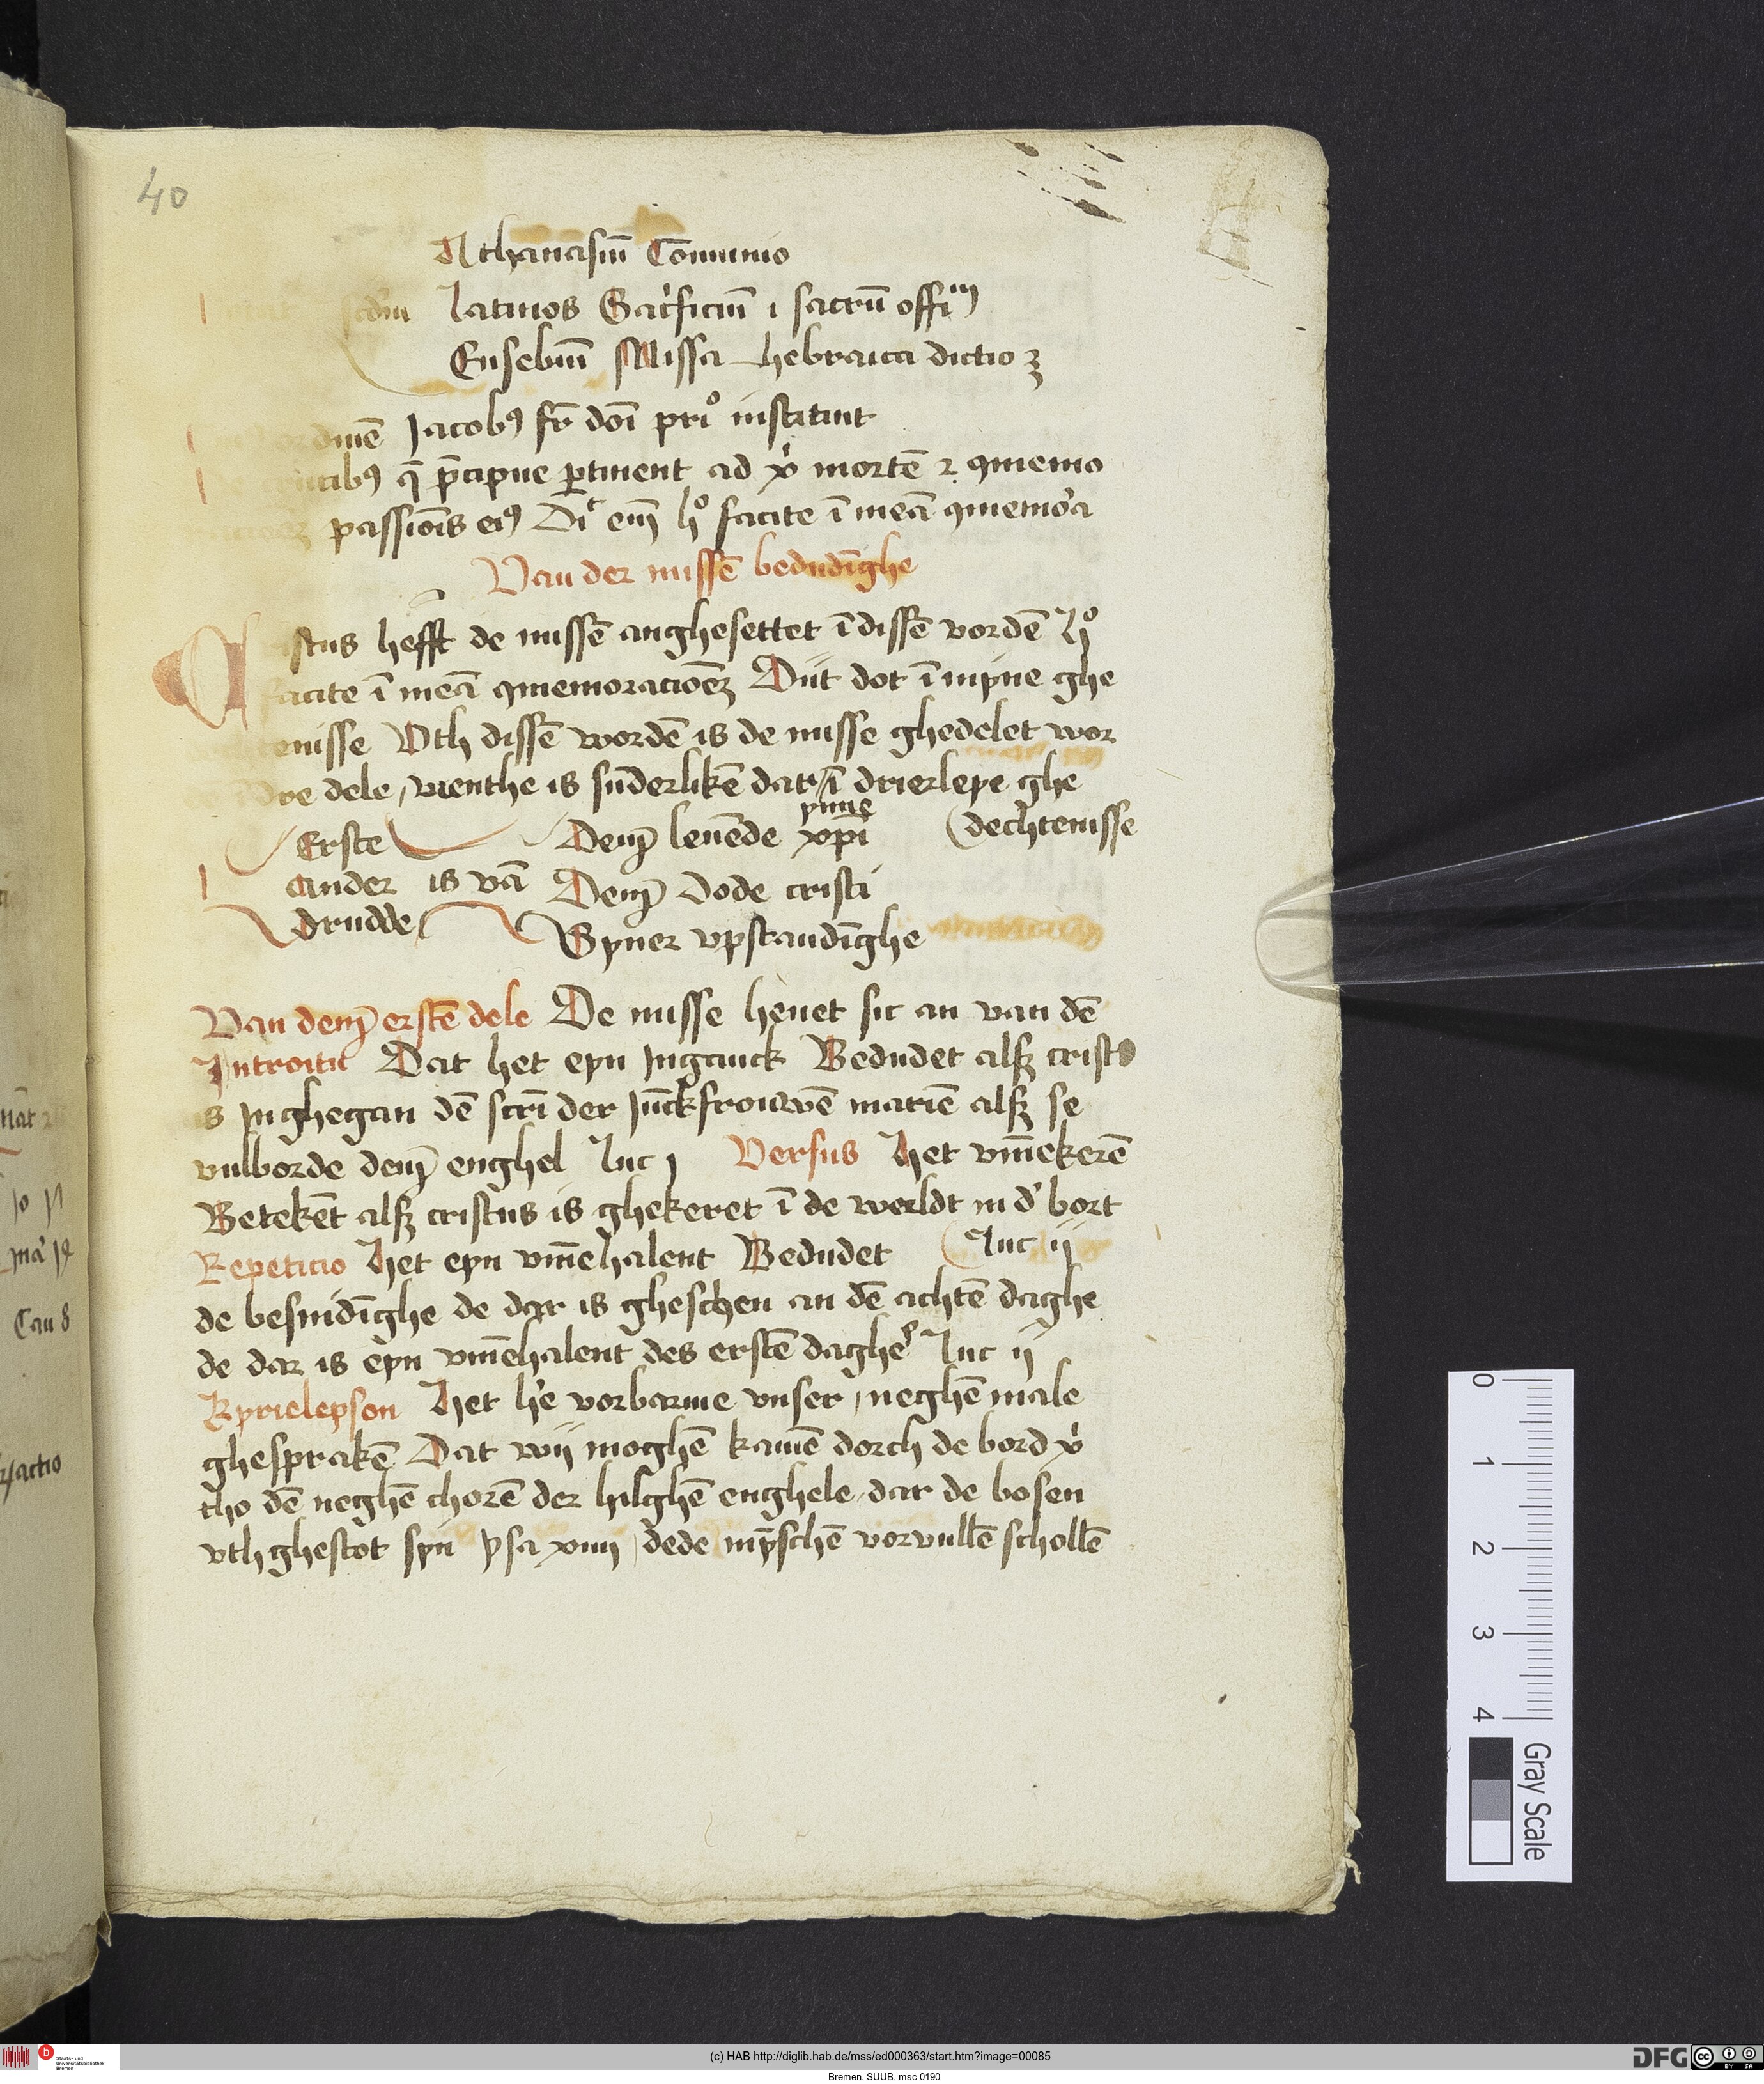 40
Athanasiū Cōmunio
scdm latinos Sacrificiū i sacrū offim
Eusebiū Missa hebraica dictio ꝫ
ordinē Jacobꝰ fr̄ dn̄i prio instituit
crucibꝰ q̄ p̄cipue ꝑtinent ad xͥ mortē ⁊ ꝯmemo
passiōis eiꝰ Dic̄ eni h° facite ī meā ꝯmemora
Van der missē bedudīghe
istus hefft de missē anghesettet ī dissē vordē h°
facite ī meā ꝯmemoracioēꝫ Dut dot ī myne ghe
tenisse Vth dissē wordē is de misse ghedelet wor
ī dre dele, wenthe is sūderlikē dar ī drierleye ghe
Erste Dem leuēde pyne xpi dechtenisse
ander is vā Dem dode cristi
drudde Syner vpstandīghe
Van dem erstē dele De misse heuet sic an van dē
Introitu Dat het eyn Inganck Bedudet alsꝫ crist9
is Inghegan dē scrī der Jūckfrouwē mariē alsꝫ se
vulborde dem enghel luc j Versus het vm̄ekerē
Betekēt alsꝫ cristus is ghekeret ī de werldt in d' bort
Repeticio het eyn vm̄ehalent Bedudet luc ij
de besnidīghe de dar is gheschen an dē achtē daghe
de dar is eyn vm̄ehalent des erstē daghes luc ij
Kyrieleyson het h'e vorbarme vnser, neghē male
ghesprakē Dat wij moghē kamē dorch de bord xͥ
tho dē neghē chorē der hilghē enghele dar de bosen
vthghestot syn ysa xiiij, dede myschē vorvullē schollē
nāt
Cau 8
actio
0
1
2
3
4
Gray Scale
b Staats- und Universitätsbibliothek Bremen
(c) HAB http://diglib.hab.de/mss/ed000363/start.htm?image=00085
DFG
cc BY SA
Bremen, SUUB, msc 0190